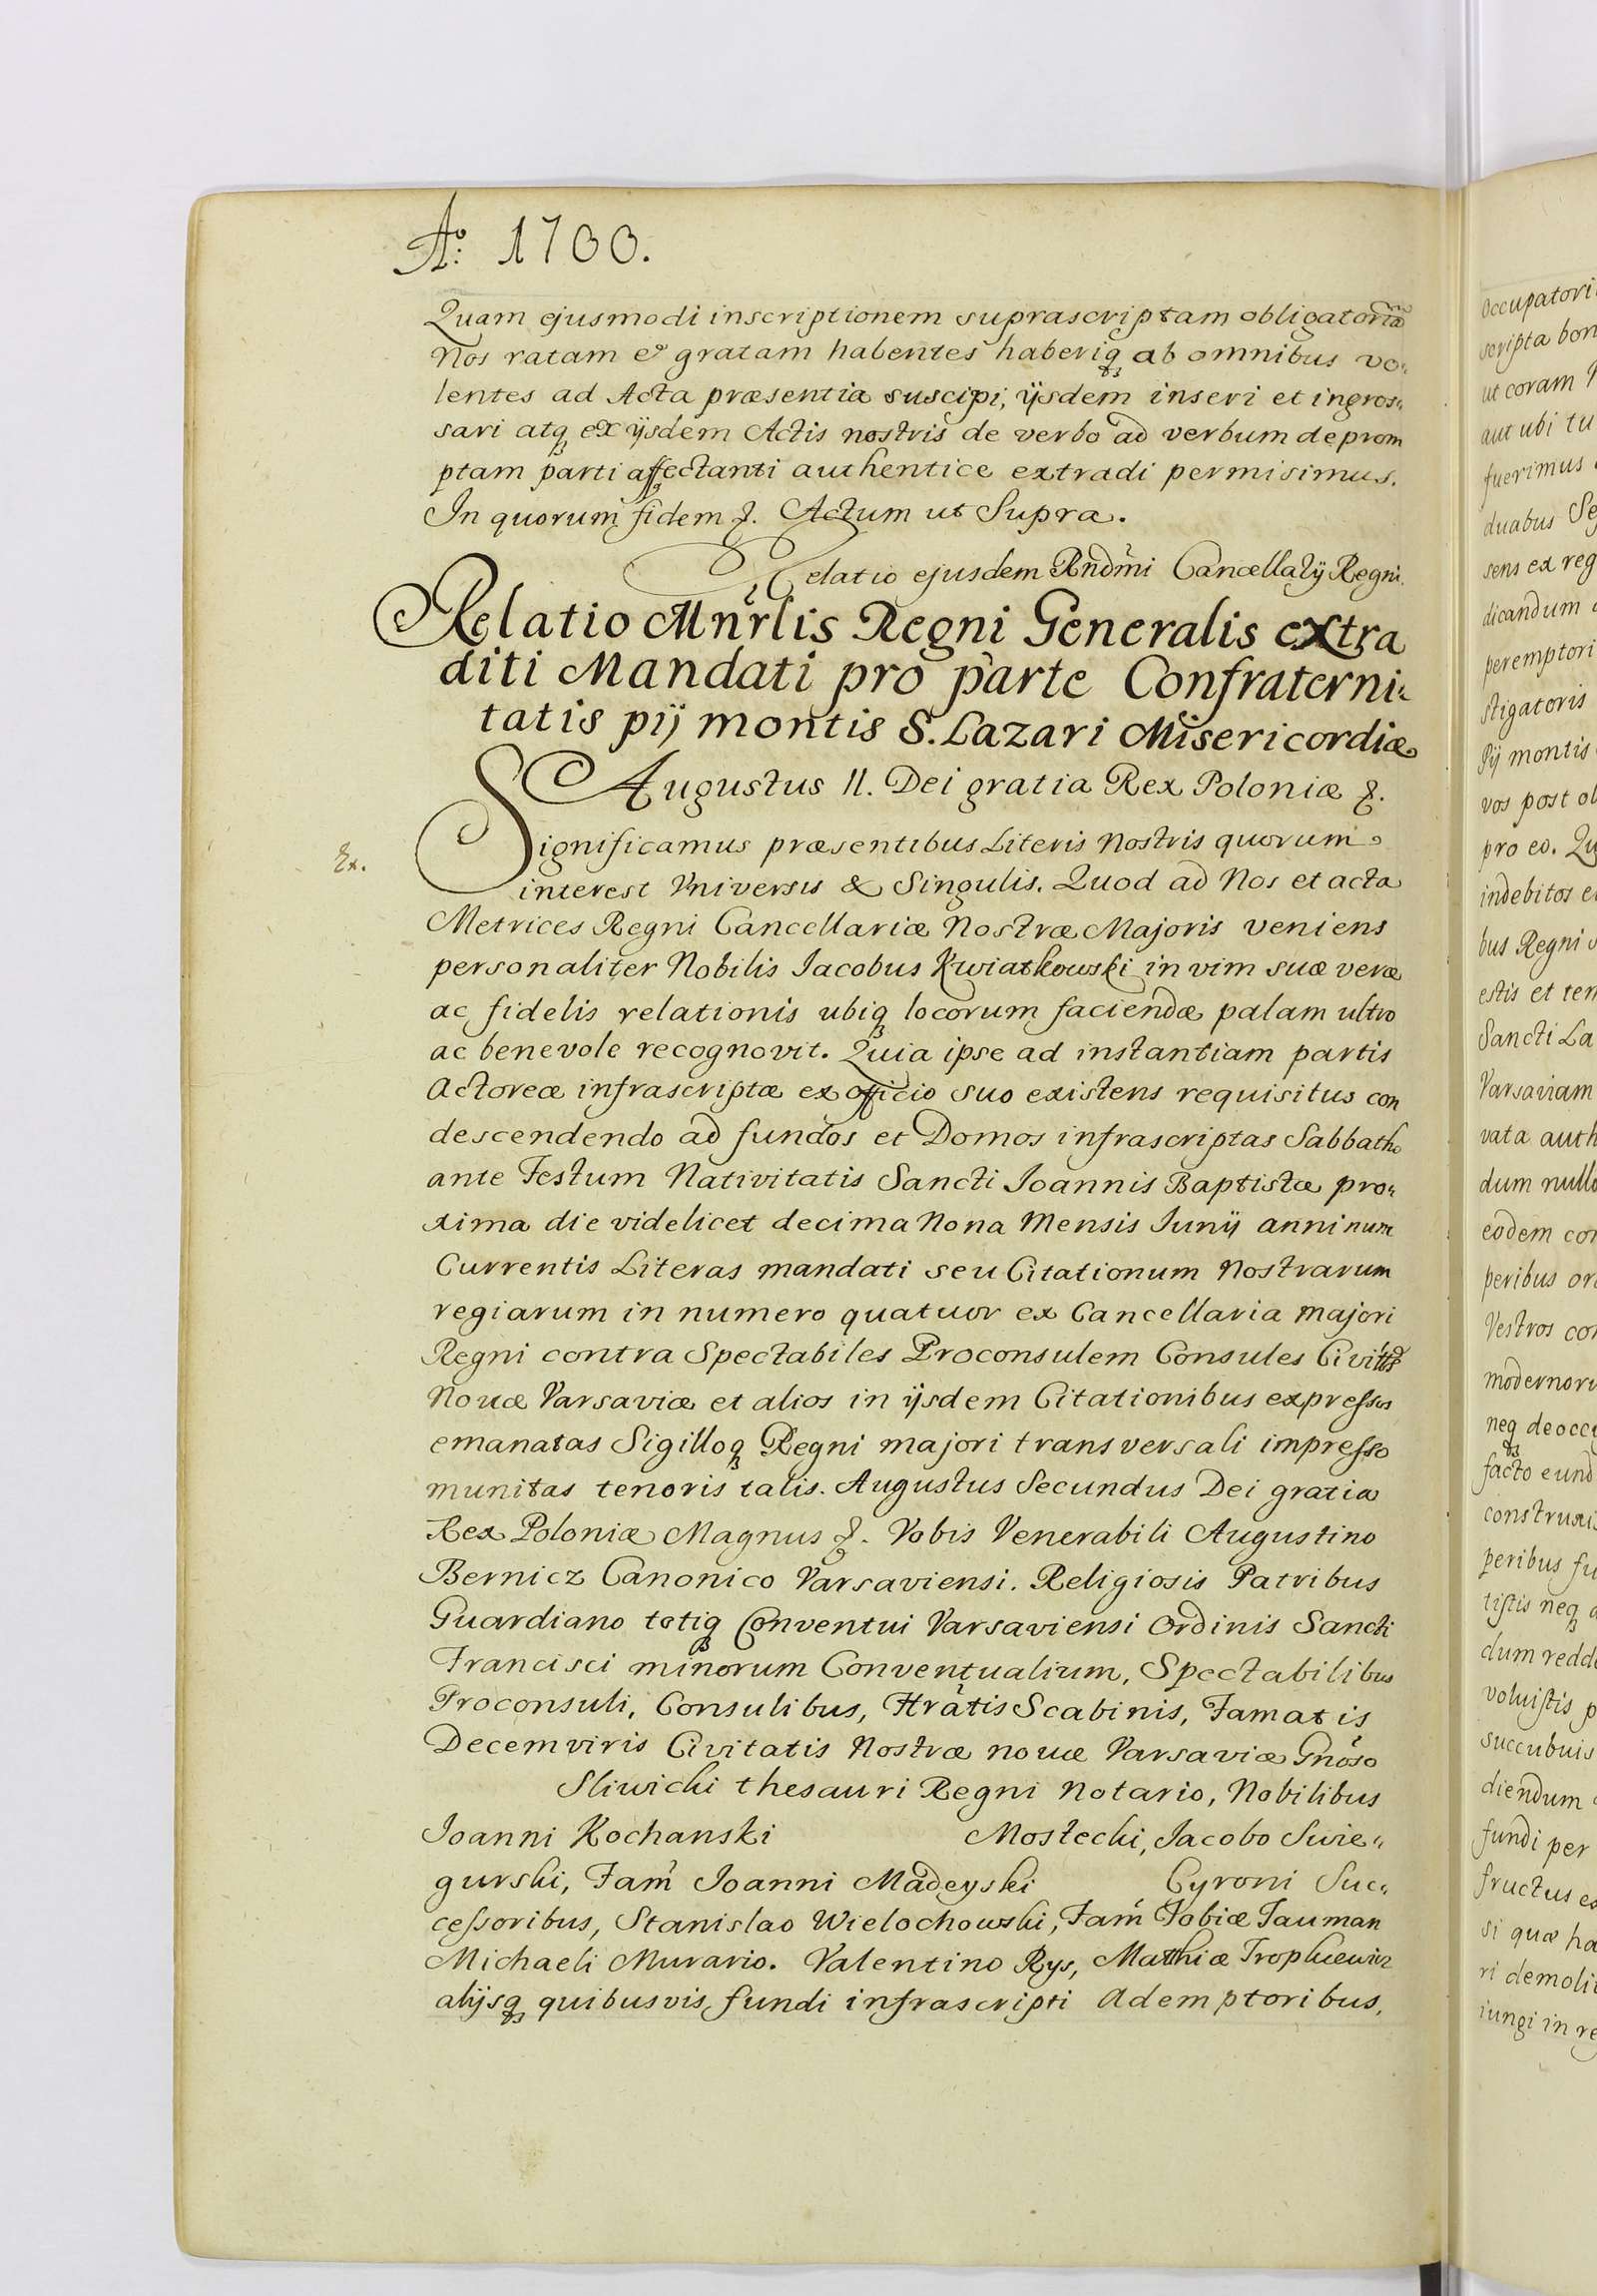 Aº: 1700.
Quam ejusmodi inscriptionem suprascriptam obligatoriã
Nos ratam & gratam habentes haberiq₃ ab omnibus vo„
lentes ad Acta præsentia suscipi, ijsdem inseri et ingros„
sari atq₃ ex ijsdem Actis nostris de verbo ad verbum deprom
ptam parti affectanti authentice extradi permisimus.
In quorum fidem &. Actum ut Supra.
Relatio ejusdem Rñdmi Cancellarij Regni.
Relatio Mnrlis Regni Generalis extra
diti Mandati pro parte Confraterni„
tatis pij montis S. Lazari Misericordiæ
Augustus II. Dei gratia Rex Poloniæ &.
Ex.
Significamus præsentibus Literis Nostris quorum
interest Vniversis & Singulis. Quod ad Nos et acta
Metrices Regni Cancellariæ Nostræ Majoris veniens
personaliter Nobilis Iacobus Kwiatkowski in vim suæ veræ
ac fidelis relationis ubiq₃ locorum faciendæ palam ultro
ac benevole recognovit. Quia ipse ad instantiam partis
Actoreæ infrascriptæ ex officio suo existens requisitus con
descendendo ad fundos et Domos infrascriptas Sabbatho
ante Festum Nativitatis Sancti Ioannis Baptistæ pro„
xima die videlicet decima Nona Mensis Iunij anni nunc
Currentis Literas mandati seu Citationum Nostrarum
regiarum in numero quatuor ex Cancellaria majori
Regni contra Spectabiles Proconsulem Consules Civittis
Nouæ Varsaviæ et alios in ijsdem Citationibus expressos
emanatas Sigilloq₃ Regni majori transversali impresso
munitas tenoris talis. Augustus Secundus Dei gratia
Rex Poloniæ Magnus &. Vobis Venerabili Augustino
Bernicz Canonico Varsaviensi. Religiosis Patribus
Guardiano totiq₃ Conventui Varsaviensi Ordinis Sancti
Francisci minorum Conventualium, Spectabilibus
Proconsuli, Consulibus, Hratis Scabinis, Famatis
Decemviris Civitatis Nostræ nouæ Varsaviæ Gnoso
Sliwicki thesauri Regni Notario, Nobilibus
Ioanni Kochanski Mostecki, Iacobo Swie„
gurski, Fam Ioanni Madeyski Cyroni Suc„
cessoribus, Stanislao Wielochowski, Fam Tobiæ Tauman
Michaeli Murario. Valentino Rys, Mathiæ
alijsq₃ quibusvis fundi infrascripti Ademptoribus,
scripta bon
ut coram
aut ubi tu
fuerimus
duabus Se
sens ex reg
dicandum
peremptori
stigatoris
Pij montis
vos post ob
pro eo. Qu
indebitos e
bus Regni s
estis et ten
Sancti La
Varsaviam
vata auth
dum nullo
eodem con
peribus or
Vestros con
modernoru
neq₃ deoccu
facto eund
construxis
peribus fu
tistis neq₃
dum redde
voluistis p
succubuis
diendum
fundi per
fructus ex
si quæ ha
ri demolit
iungi in re